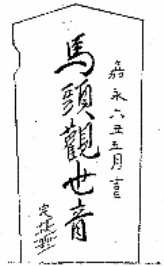 嘉永六丑五月吉
馬頭觀世音